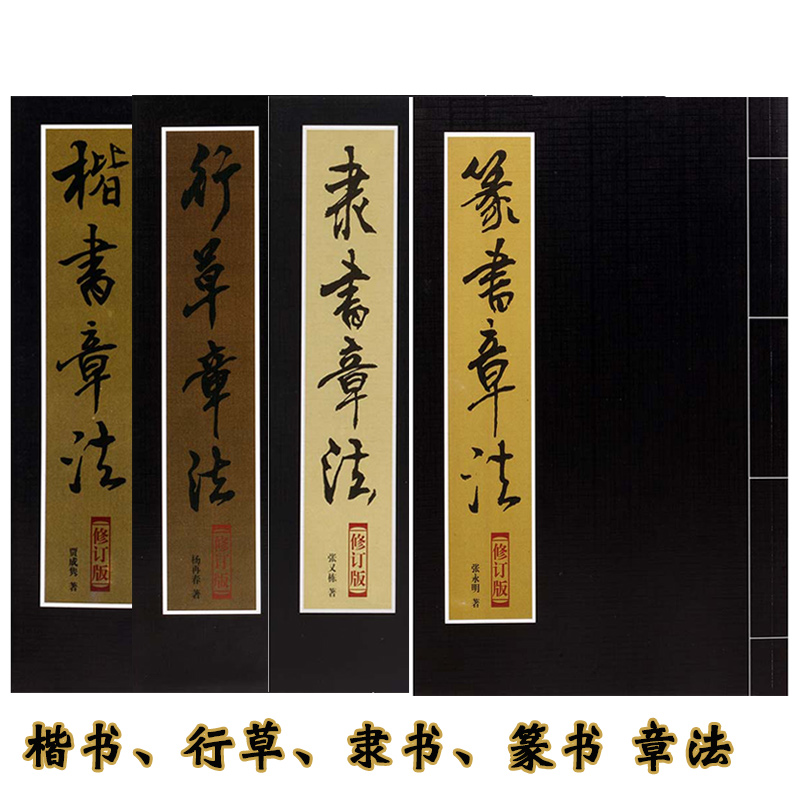 楷书章法
修订版
贾成隽 著
行草章法
修订版
杨再春 著
隶书章法
修订版
张又栋 著
篆书章法
修订版
张永明 著
楷书、行草、隶书、篆书 章法